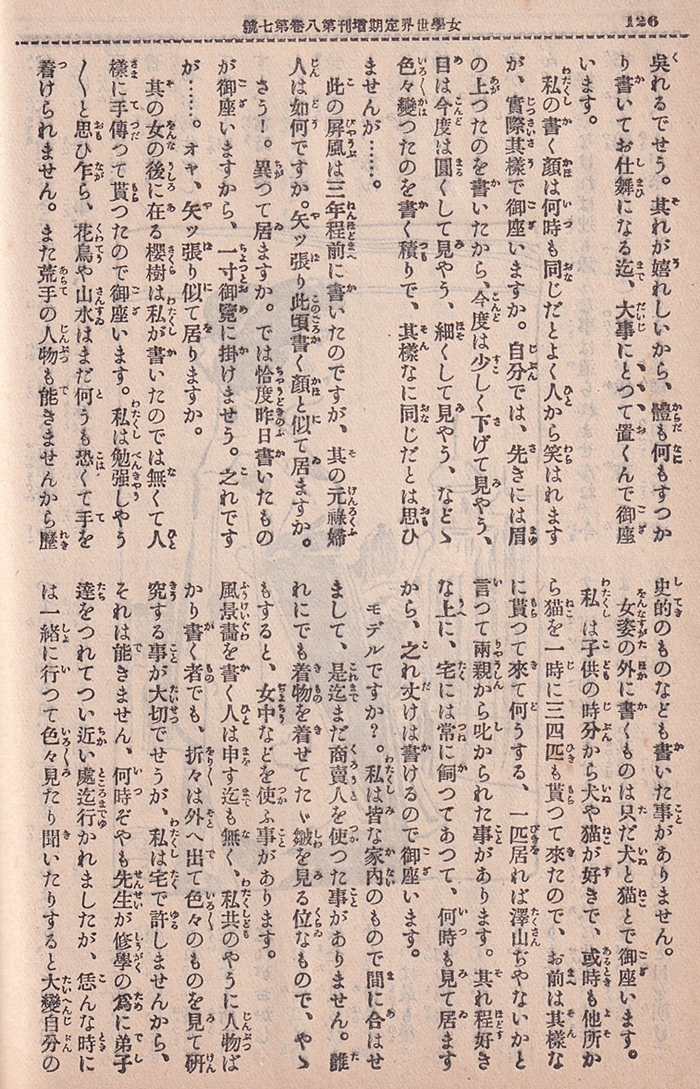 女學世界定期増刊第八卷第七號
126
吳れるでせう。其れが嬉れしいから、體も何もすつか
り書いてお仕舞になる迄、大事にとつて置くんで御座
います。
私の書く顏は何時も同じだとよく人から笑はれます
が、實際其樣で御座いますか。自分では、先きには眉
の上つたのを書いたから、今度は少しく下げて見やう、
目は今度は圓くして見やう、細くして見やう、などゝ
色々變つたのを書く積りで、其樣なに同じだとは思ひ
ませんが……。
此の屏風は三年程前に書いたのですが、其の元祿婦
人は如何ですか。矢ッ張り此頃書く顏と似て居ますか。
さう！。異つて居ますか。では恰度昨日書いたもの
が御座いますから、一寸御覽に掛けませう。之れです
が……。オヤ、矢ッ張り似て居りますか。
其の女の後に在る櫻樹は私が書いたのでは無くて人
樣に手傳つて貰つたので御座います。私は勉强しやう
〱と思ひ乍ら、花鳥や山水はまだ何うも恐くて手を
着けられません。また荒手の人物も能きませんから歷
史的のものなども書いた事がありません。
女姿の外に書くものは只だ犬と猫とで御座います。
私は子供の時分から犬や猫が好きで、或時も他所か
ら猫を一時に三四匹も貰つて來たので、お前は其樣な
に貰つて來て何うする、一匹居れば澤山ぢやないかと
言つて兩親から叱かられた事があります。其れ程好き
な上に、宅には常に飼つてあつて、何時も見て居ます
から、之れ丈けは書けるので御座います。
モデルですか？。私は皆な家内のもので間に合はせ
まして、是迄まだ商賣人を使つた事がありません。誰
れにでも着物を着せてたゞ皺を見る位なもので、やゝ
もすると、女中などを使ふ事があります。
風景畵を書く人は申す迄も無く、私共のやうに人物ば
かり書く者でも、折々は外へ出て色々のものを見て硏
究する事が大切でせうが、私は宅で許しませんから、
それは能きません、何時ぞやも先生が修學の爲に弟子
達をつれてつい近い處迄行かれましたが、恁んな時に
は一緖に行つて色々見たり聞いたりすると大變自分の